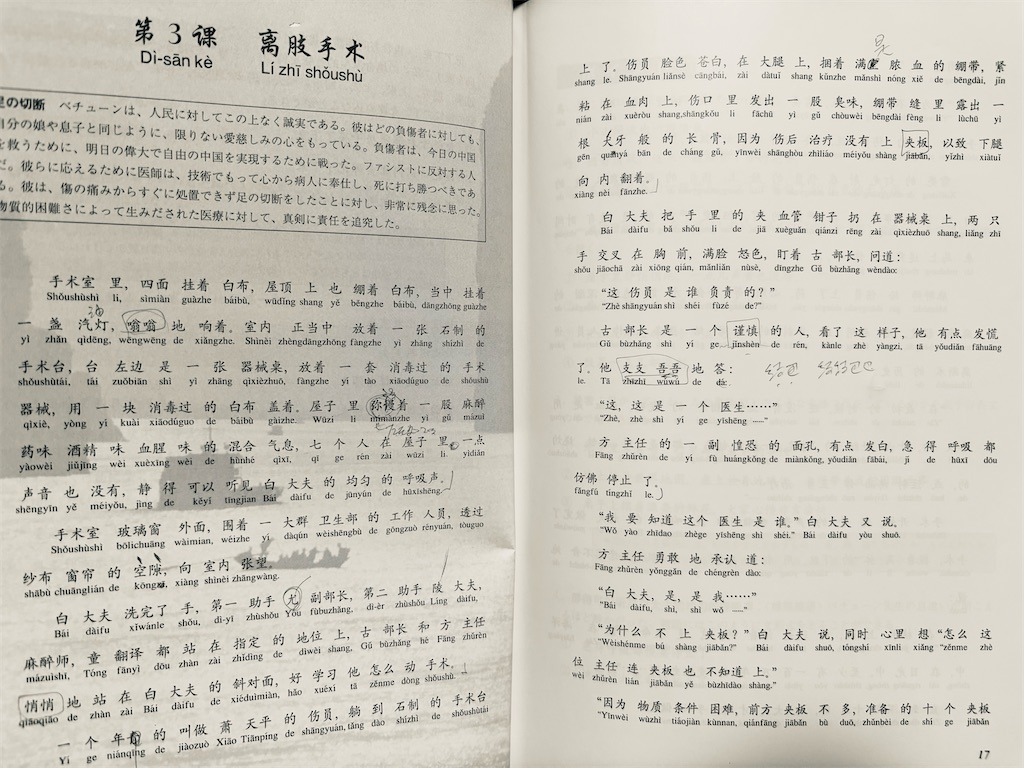 第3课 离肢手术
Dì-sān kè Lí zhī shǒushù
足の切断 ベチューンは、人民に対してこの上なく誠実である。彼はどの負傷者に対しても、
自分の娘や息子と同じように、限りない愛慈しみの心をもっている。負傷者は、今日の中国
を救うために、明日の偉大で自由の中国を実現するために戦った。ファシストに反対する人
だ。彼らに応えるために医師は、技術でもって心から病人に奉仕し、死に打ち勝つべきであ
る。彼は、傷の痛みからすぐに処置できず足の切断をしたことに対し、非常に残念に思った。
物質的困難さによって生みだされた医療に対して、真剣に責任を追究した。
手术室 里, 四面 挂着 白布, 屋顶 上 也 绷着 白布, 当中 挂着
Shǒushùshì li, sìmiàn guàzhe báibù, wūdǐng shang yě bēngzhe báibù, dāngzhōng guàzhe
一 盏 汽灯, 嗡嗡 地 响着。室内 正当中 放着 一 张 石制 的
yì zhǎn qìdēng, wēngwēng de xiǎngzhe. Shìnèi zhèngdāngzhōng fàngzhe yì zhāng shízhì de
手术台, 台 左边 是 一 张 器械桌, 放着 一 套 消毒过 的 手术
shǒushùtái, tái zuǒbiān shì yì zhāng qìxièzhuō, fàngzhe yí tào xiāodúguo de shǒushù
器械, 用 一 块 消毒过 的 白布 盖着。屋子 里 弥漫着 一 股 麻醉
qìxiè, yòng yí kuài xiāodúguo de báibù gàizhe. Wūzi li mímànzhe yì gǔ mázuì
药味 酒精 味 血腥 味 的 混合 气息, 七 个 人 在 屋子 里, 一点
yàowèi jiǔjīng wèi xuèxīng wèi de hùnhé qìxī, qī ge rén zài wūzi li. yìdiǎn
声音 也 没有, 静 得 可以 听见 白 大夫 的 均匀 的 呼吸声。
shēngyīn yě méiyǒu, jìng de kěyǐ tīngjian Bái dàifu de jūnyún de hūxīshēng.
手术室 玻璃窗 外面, 围着 一 大群 卫生部 的 工作 人员, 透过
Shǒushùshì bōlichuāng wàimian, wéizhe yí dàqún wèishēngbù de gōngzuò rényuán, tòuguo
纱布 窗帘 的 空隙, 向 室内 张望。
shābù chuānglián de kòngxì, xiàng shìnèi zhāngwàng.
白 大夫 洗完了 手, 第一 助手 尤 副部长, 第二 助手 陵 大夫,
Bái dàifu xǐwánle shǒu, dì-yī zhùshǒu Yóu fùbùzhǎng, dì-èr zhùshǒu Líng dàifu,
麻醉师, 童 翻译 都 站 在 指定 的 地位 上, 古 部长 和 方 主任
mázuìshī, Tóng fānyì dōu zhàn zài zhǐdìng de dìwèi shang, Gǔ bùzhǎng hé Fāng zhǔrèn
悄悄 地 站 在 白 大夫 的 斜对面, 好 学习 他 怎么 动 手术。
qiāoqiāo de zhàn zài Bái dàifu de xiéduìmiàn, hǎo xuéxí tā zěnme dòng shǒushù.
一 个 年青 的 叫做 萧 天平 的 伤员, 躺 到 石制 的 手术台
Yí ge niánqīng de jiàozuò Xiāo Tiānpíng de shāngyuán, tǎng dào shízhì de shǒushùtái
上 了。伤员 脸色 苍白, 在 大腿 上, 捆着 满是 脓 血 的 绷带, 紧
shang le. Shāngyuán liǎnsè cāngbái, zài dàtuǐ shang kǔnzhe mǎnshì nóng xiě de bēngdài, jǐn
粘 在 血肉 上, 伤口 里 发出 一 股 臭味, 绷带 缝 里 露出 一
nián zài xuèròu shang,shāngkǒu li fāchū yì gǔ chòuwèi bēngdài fèng li lùchū yì
根 犬牙 般 的 长 骨, 因为 伤后 治疗 没有 上 夹板, 以致 下腿
gēn quǎnyá bān de cháng gǔ, yīnwèi shānghòu zhìliáo méiyǒu shàng jiābǎn, yǐzhì xiàtuǐ
向 内 翻着。
xiàng nèi fānzhe.
白 大夫 把 手 里 的 夹 血管 钳子 扔 在 器械桌 上, 两 只
Bái dàifu bǎ shǒu li de jiā xuèguǎn qiánzi rēng zài qìxièzhuō shang, liǎng zhī
手 交叉 在 胸 前, 满脸 怒色, 盯着 古 部长, 问道:
shǒu jiāochā zài xiōng qián, mǎnliǎn nùsè, dīngzhe Gǔ bùzhǎng wèndào:
“这 伤员 是 谁 负责 的?”
“Zhè shāngyuán shì shéi fùzé de?”
古 部长 是 一 个 谨慎 的 人, 看了 这 样子, 他 有点 发慌
Gǔ bùzhǎng shì yí ge jǐnshèn de rén, kànle zhè yàngzi, tā yǒudiǎn fāhuāng
了。他 支支 吾吾 地 答: 结巴 结结巴巴
le. Tā zhīzhī wúwú de dá:
“这, 这 是 一 个 医生……”
“Zhè, zhè shì yí ge yīshēng ......”
方 主任 的 一 副 惶恐 的 面孔, 有点 发白, 急 得 呼吸 都
Fāng zhǔrèn de yí fù huángkǒng de miànkǒng, yǒudiǎn fābái, jí de hūxī dōu
仿佛 停止 了。
fǎngfú tíngzhǐ le.
“我 要 知道 这个 医生 是 谁。” 白 大夫 又 说。
“Wǒ yào zhīdao zhège yīshēng shì shéi.” Bái dàifu yòu shuō.
方 主任 勇敢 地 承认 道:
Fāng zhǔrèn yǒnggǎn de chéngrèn dào:
“白 大夫, 是, 是 我……”
“Bái dàifu, shì, shì wǒ ......”
“为什么 不 上 夹板?” 白 大夫 说, 同时 心里 想 “怎么 这
“Wèishénme bú shàng jiābǎn?” Bái dàifu shuō, tóngshí xīnli xiǎng “zěnme zhè
位 主任 连 夹板 也 不知道 上。”
wèi zhǔrèn lián jiābǎn yě bùzhīdào shàng.”
“因为 物质 条件 困难, 前方 夹板 不 多, 准备 的 十 个 夹板
“Yīnwèi wùzhì tiáojiàn kùnnan, qiánfāng jiābǎn bù duō, zhǔnbèi de shí ge jiābǎn
17